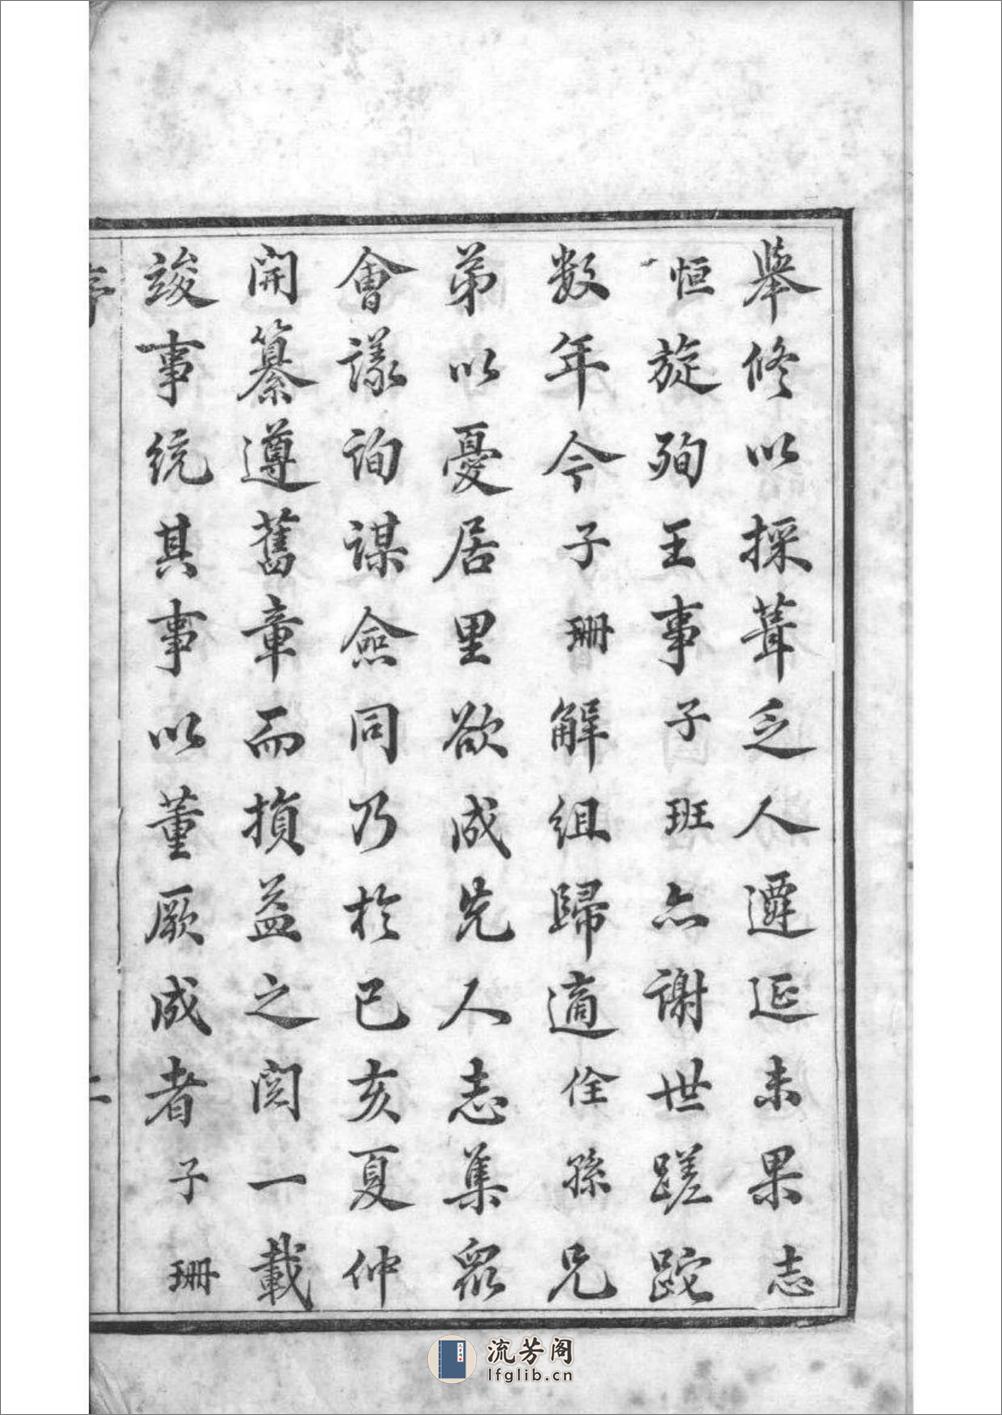 舉修以採葺乏人遷延未果志
恒旋殉王事子班亦謝世蹉跎
数年今子珊解組歸適佺孫兄
弟以憂居里欲成先人志集眾
會議詢謀僉同乃於己亥夏仲
開纂遵舊章而損益之閱一載
竣事統其事以董厥成者子珊
序
二
流芳阁
lfglib.cn